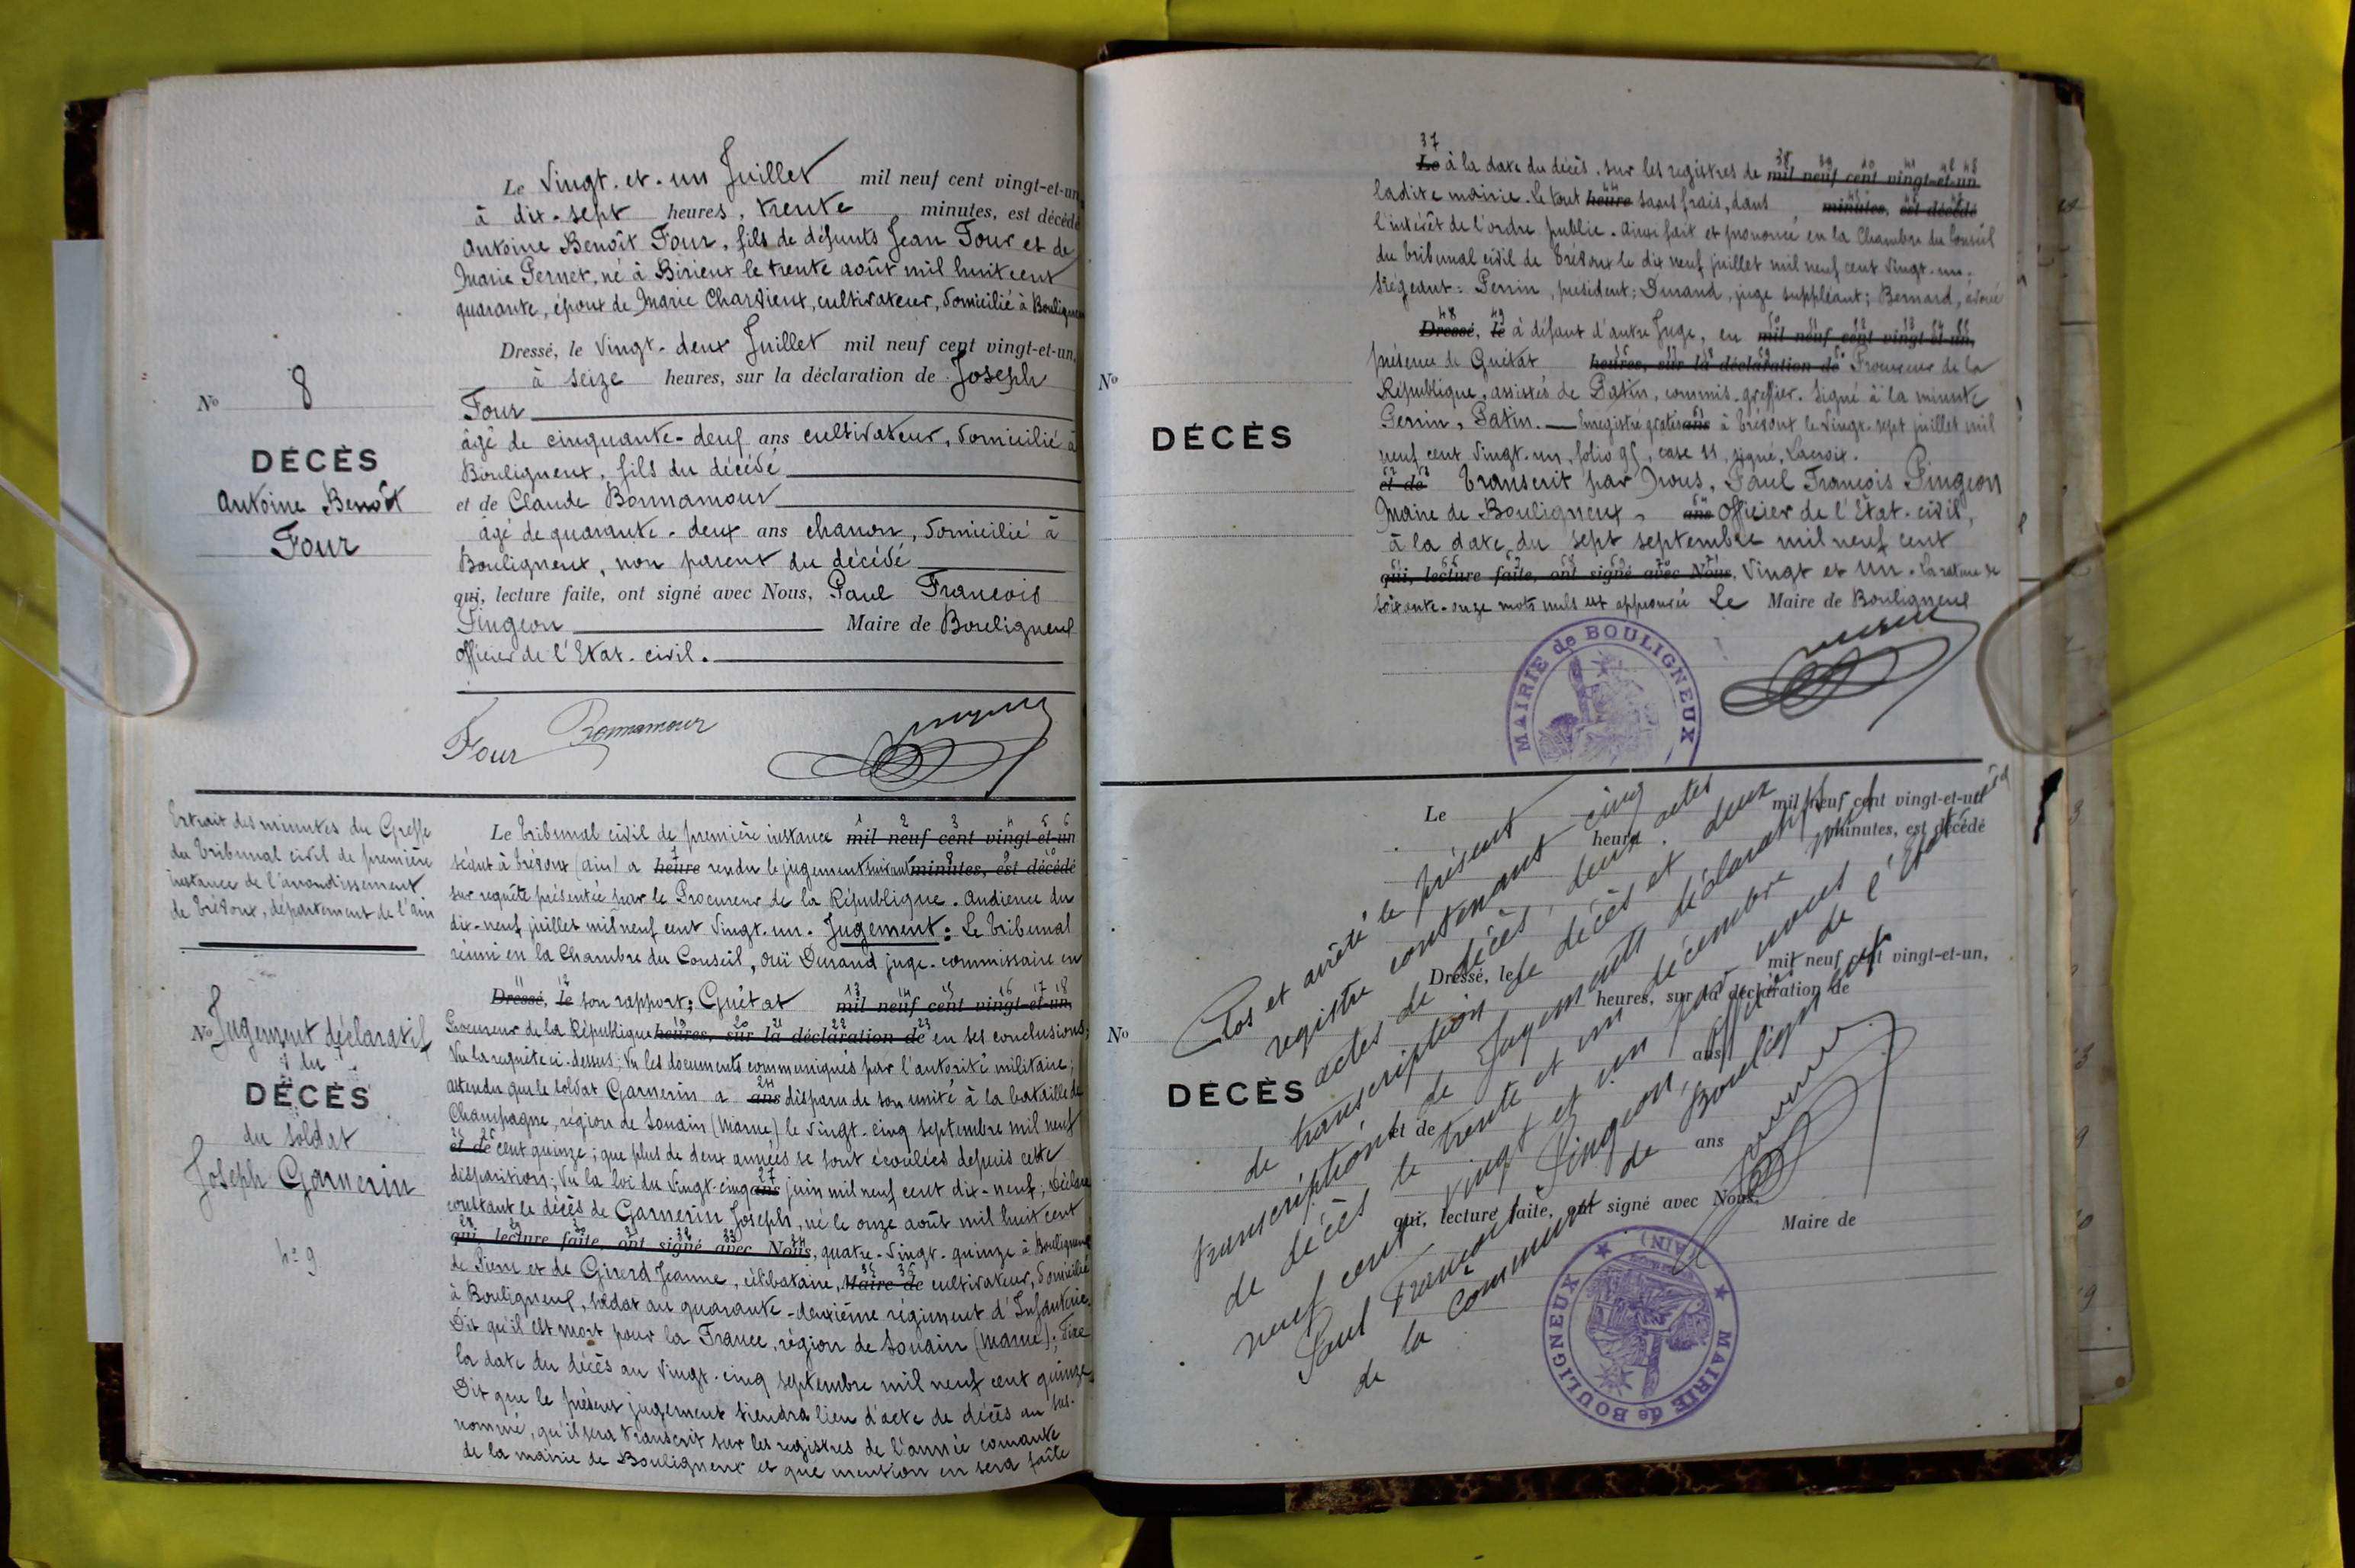 Le Vingt-et-un Juillet mil neuf cent vingt-et-un
à dix-sept heures, trente minutes, est décédé
Antoine Benoît Four, fils de défunts Jean Four et de
Marie Pernet, né à Birieux le trente août mil huit cent
quarante, époux de Marie Charvieux, cultivateur, domicilié à Bouligneux
Dressé, le Vingt-deux Juillet mil neuf cent vingt-et-un,
à seize heures, sur la déclaration de Joseph
Four
âgé de cinquante-deux ans cultivateur, domicilié à
Bouligneux, fils du décédé
et de Claude Bonnamour
âgé de quarante-deux ans charron, domicilié à
Bouligneux, non parent du décédé
qui, lecture faite, ont signé avec Nous, Paul François
Pingeon Maire de Bouligneux
Officier de l'Etat-civil.
No 8
DÉCÈS
Antoine Benoît
Four
Four Bonnamour
Extrait des minutes du Greffe
du Tribunal civil de première
instance de l'arrondissement
de Trévoux, département de l'ain
No Jugement déclaratif
du
DÉCÈS
du soldat
Joseph Garnerin
No 9
Le Tribunal civil de première instance mil neuf cent vingt-et-un
séant à Trévoux (ain) a heure rendu le jugement suivant minutes, est décédé
sur requête présentée par le Procureur de la République. Audience du
dix-neuf juillet mil neuf cent vingt-un. Jugement: Le Tribunal
réuni en la Chambre du Conseil, ouï Durand juge-commissaire en
Dressé, le son rapport; Guétat mil neuf cent vingt-et-un,
Procureur de la République heures, sur la déclaration de en ses conclusions;
Vu la requête ci-dessus; Vu les documents communiqués par l'autorité militaire;
attendu que le soldat Garnerin a ans disparu de son unité à la bataille de
Champagne, région de Souain (Marne) le vingt-cinq septembre mil neuf
et de cent quinze; que plus de deux années se sont écoulées depuis cette
disparition; Vu la loi du vingt-cinq ans juin mil neuf cent dix-neuf; Déclare
constant le décès de Garnerin Joseph, né le onze août mil huit cent
qui, lecture faite, ont signé avec Nous, quatre-vingt-quinze à Bouligneux
de Pierre et de Girerd Jeanne, célibataire, Maire de cultivateur, domicilié
à Bouligneux, soldat au quarante-deuxième régiment d'Infanterie.
Dit qu'il est mort pour la France, région de Souain (Marne); Fixe
la date du décès au vingt-cinq septembre mil neuf cent quinze.
Dit que le présent jugement tiendra lieu d'acte de décès au sus-
nommé, qu'il sera transcrit sur les registres de l'année courante
de la mairie de Bouligneux et que mention en sera faite
Le à la date du décès, sur les registres de mil neuf cent vingt-et-un
ladite mairie. Le tout heure sans frais, dans minutes, est décédé
l'intérêt de l'ordre public. Ainsi fait et prononcé en la Chambre du Conseil
du Tribunal civil de Trévoux le dix neuf juillet mil neuf cent vingt-un.
Siégeant: Perrin, président; Durand, juge suppléant; Bernard, avoué
Dressé, le à défaut d'autre Juge, en mil neuf cent vingt-et-un,
présence de Guétat heures, sur la déclaration de Procureur de la
République, assistés de Patin, commis-greffier. Signé à la minute
Perrin, Patin. Enregistré gratis ans à Trévoux le vingt-sept juillet mil
neuf cent vingt-un, folio 95, case 11, signé, Lacroix.
et de Transcrit par Nous, Paul François Pingeon
Maire de Bouligneux, ans Officier de l'Etat-civil,
à la date du sept septembre mil neuf cent
qui, lecture faite, ont signé avec Nous, Vingt et Un. La rature de
soixante-onze mots nuls est approuvée Le Maire de Bouligneux
No
DÉCÈS
MAIRIE de BOULIGNEUX
Le mil neuf cent vingt-et-un
heure minutes, est décédé
Dressé, le mil neuf cent vingt-et-un,
heures, sur la déclaration de
ans
et de
ans
qui, lecture faite, ont signé avec Nous,
Maire de
No
DÉCÈS
Clos et arrêté le présent
registre contenant cinq
actes de décès, deux actes
de transcription de décès et deux
transcriptions de Jugements déclaratifs
de décès le trente et un décembre mil
neuf cent vingt et un par nous
Paul François Pingeon, officier de l'Etat civil
de la commune de Bouligneux
MAIRIE de BOULIGNEUX (AIN)